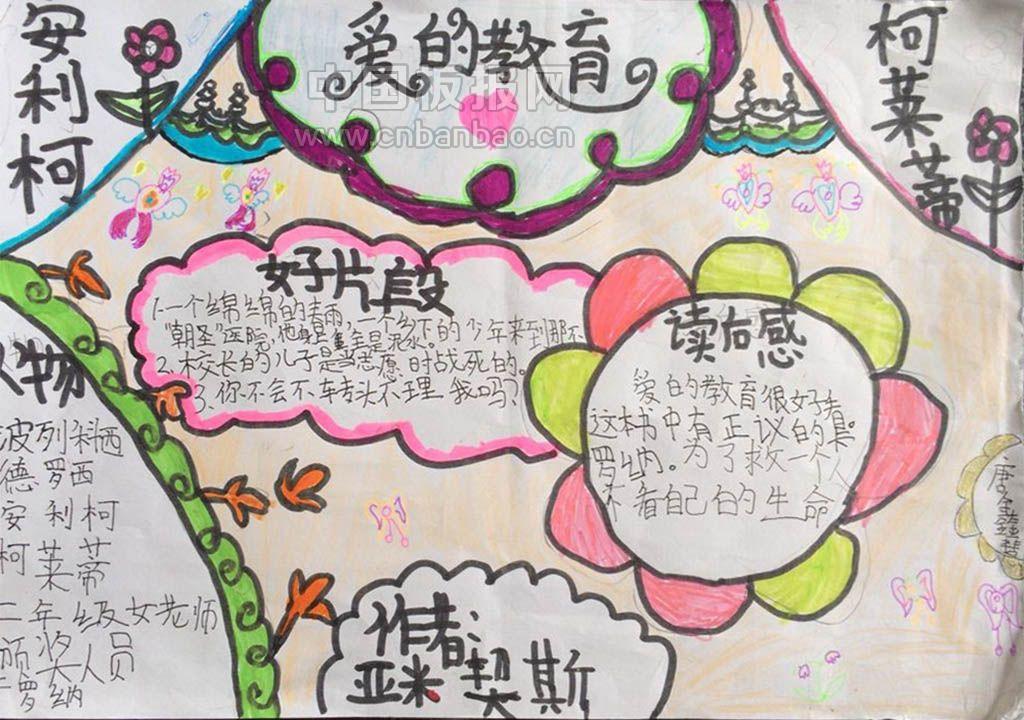 爱的教育
中国板报网
www.cnbanbao.cn
安利柯
柯莱蒂
好片段
1.一个绵绵的
"朝圣"医院,他身 全是泥水。一个乡下的少年来到那不
2.校长的儿子是当志愿时战死的。
3.你不会不车专头不理我吗?
读右感
爱的教育很好看
这本书中有正议的集
罗纳。为了救一个人
不看自己白的生命
人物
波列科西
德罗西
安利柯
柯莱蒂
二年级女老师
颁奖人员
罗纳
作者:
亚米契斯